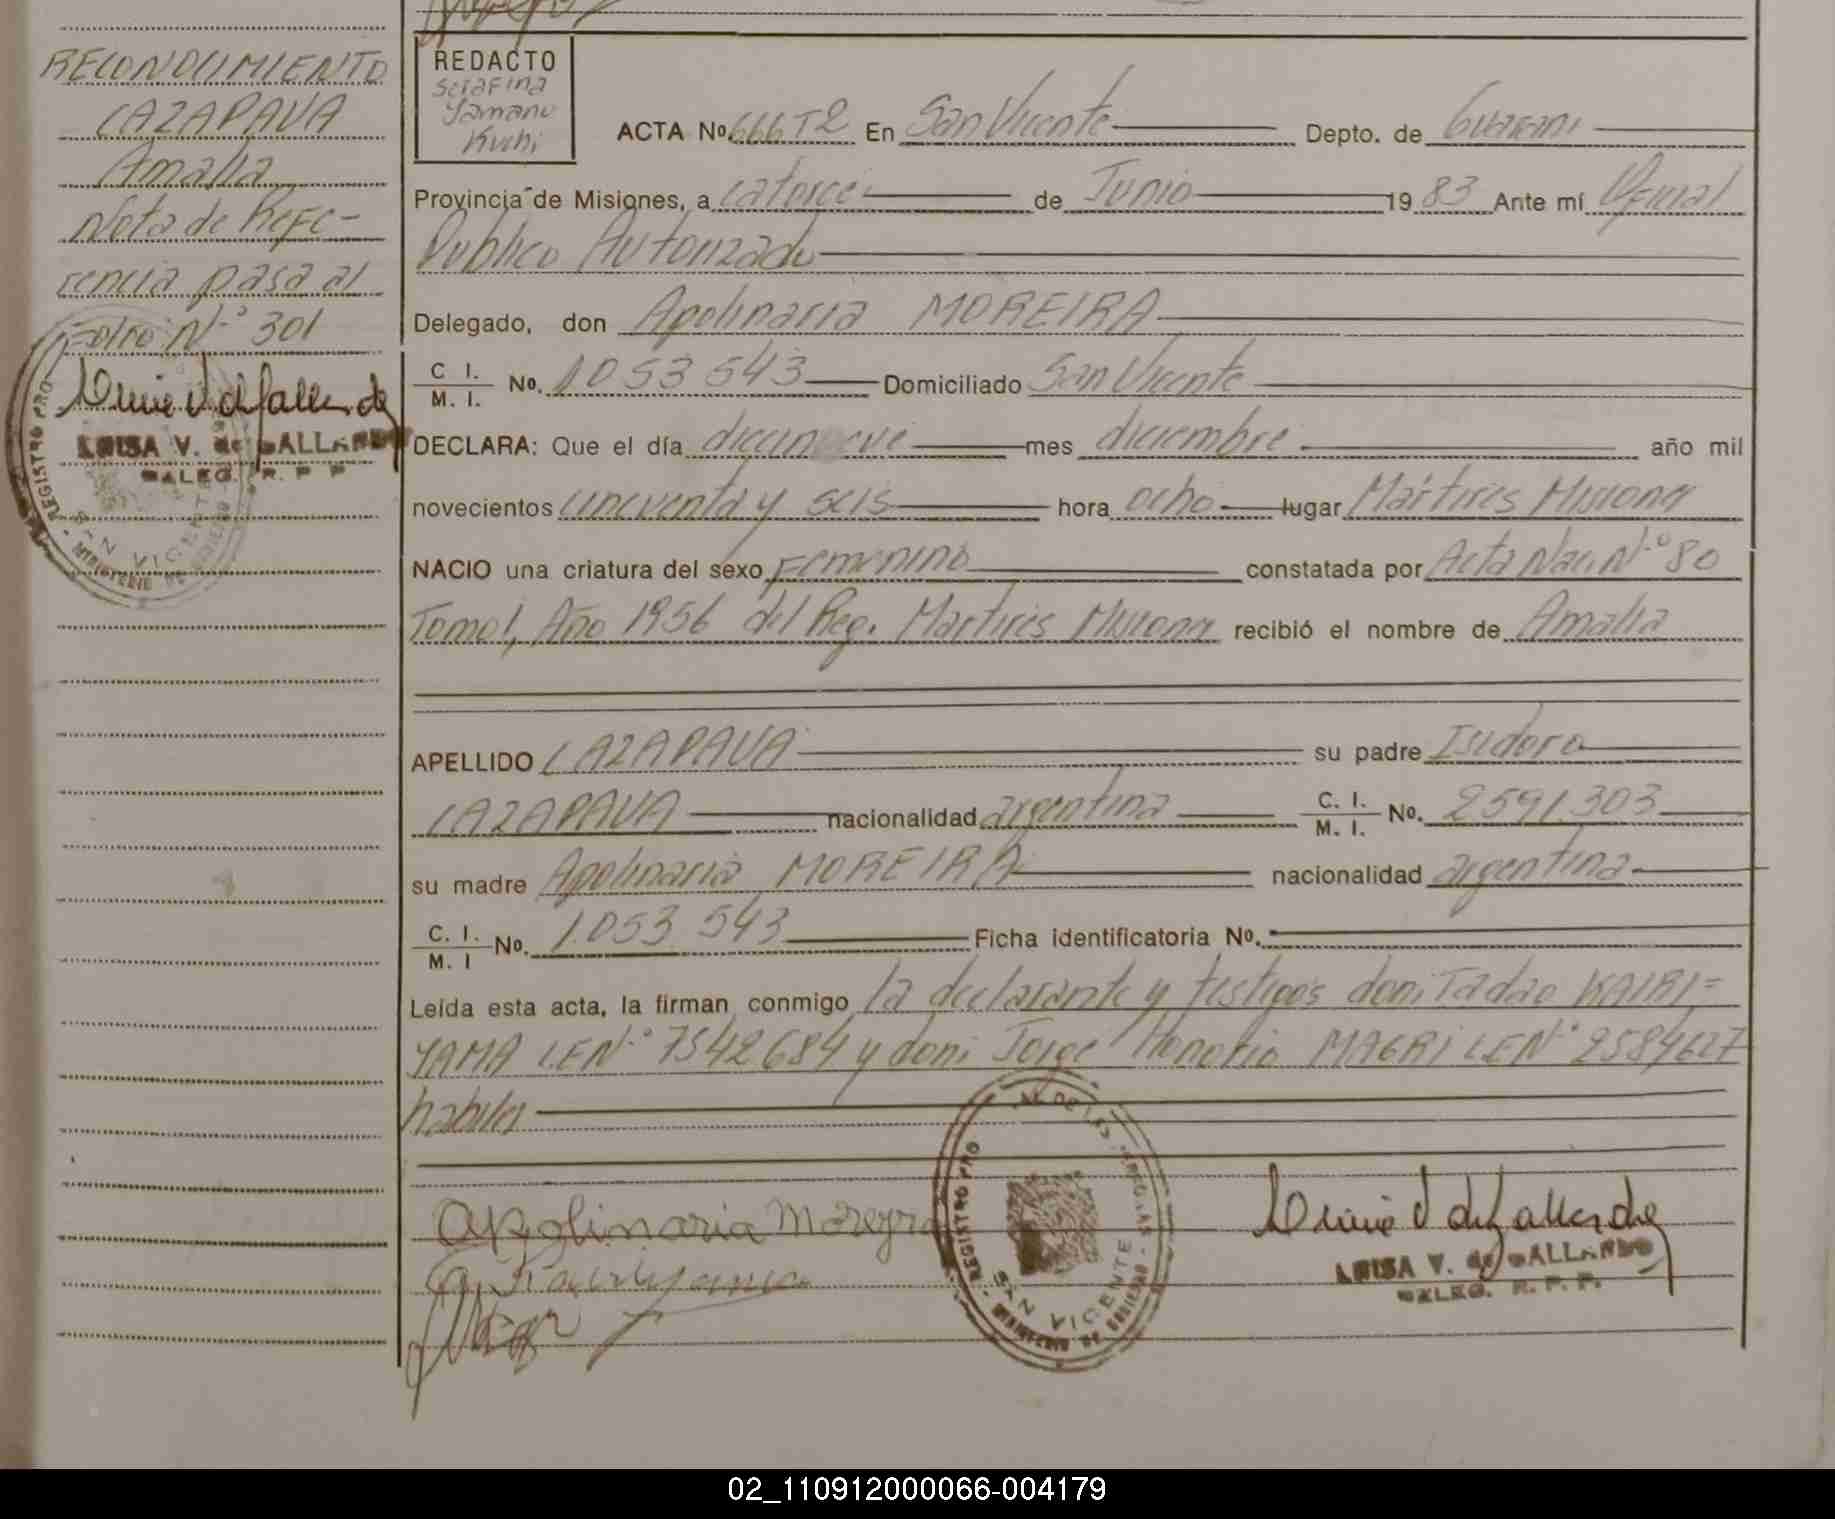 RECONOCIMIENTO
CAZAPAVA
Amalia
Nota de Refe-
rencia pasa al
Folio N° 301
LUISA V. de GALLARDO
DELEG. R. P. P.
REGISTRO PRO
SAN VICENTE
MINISTERIO DE GOBIERNO
REDACTO
Serafina
Yamanu
Kuchi
ACTA No. 666 T2 En San Vicente Depto. de Guarani
Provincia de Misiones, a catorce de Junio 1983 Ante mí Oficial
Publico Autorizado
Delegado, don Apolinaria MOREIRA
C. I. / M. I. No. 1.053.543 Domiciliado San Vicente
DECLARA: Que el día diecinueve mes diciembre año mil
novecientos cincuenta y seis hora ocho lugar Mártires Misiones
NACIO una criatura del sexo Femenino constatada por Acta Nac. N° 80
Tomo 1, Año 1956 del Reg. Martires Misiones recibió el nombre de Amalia
APELLIDO CAZAPAVA su padre Isidoro
CAZAPAVA nacionalidad argentina C. I. / M. I. No. 2591.303
su madre Apolinaria MOREIRA nacionalidad argentina
C. I. / M. I No. 1.053.543 Ficha identificatoria No.
Leída esta acta, la firman conmigo la declarante y testigos don: Tadao KAIRI=
YAMA LEN° 7542684 y don: Jorge Honorio MAGRI LEN° 2584627
habiles
Apolinaria Moreyra
REGISTRO PRO AL DE LAS PERSONAS
SAN VICENTE
MINISTERIO DE GOBIERNO
LUISA V. de GALLARDO
DELEG. R. P. P.
02_110912000066-004179